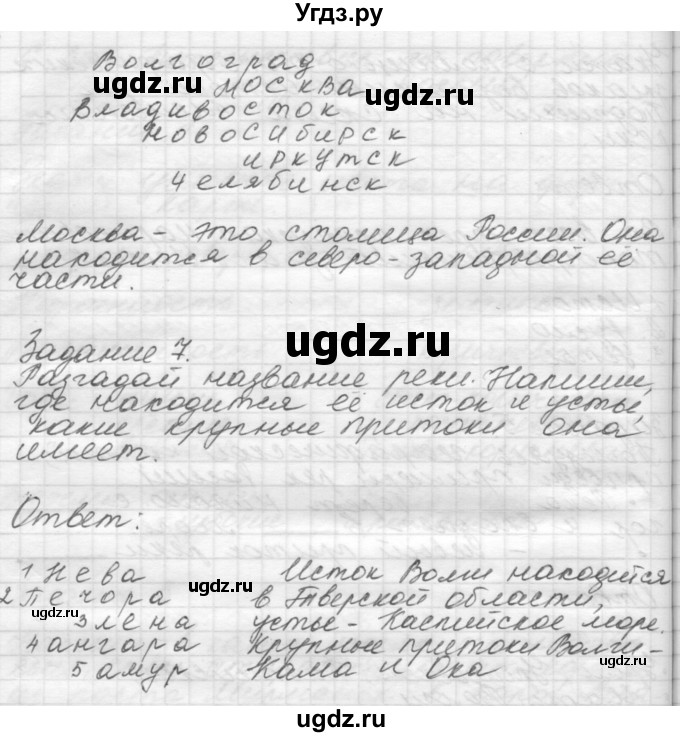 Угдз.ру
Волгоград
Москва
Владивосток
Новосибирск
иркутск
Челябинск
Москва - это столица России. Она
находится в северо-западной её
части.
Задание 7.
Разгадай название реки. Напиши,
где находится её исток и устье,
какие крупные притоки она
имеет.
Ответ:
1 Нева Исток Волги находится
2 Печора в Тверской области,
3 лена устье - Каспийское море.
4 ангара Крупные притоки Волги -
5 амур Кама и Ока
ugdz.ru
ugdz.ru
ugdz.ru
ugdz.ru
ugdz.ru
ugdz.ru
ugdz.ru